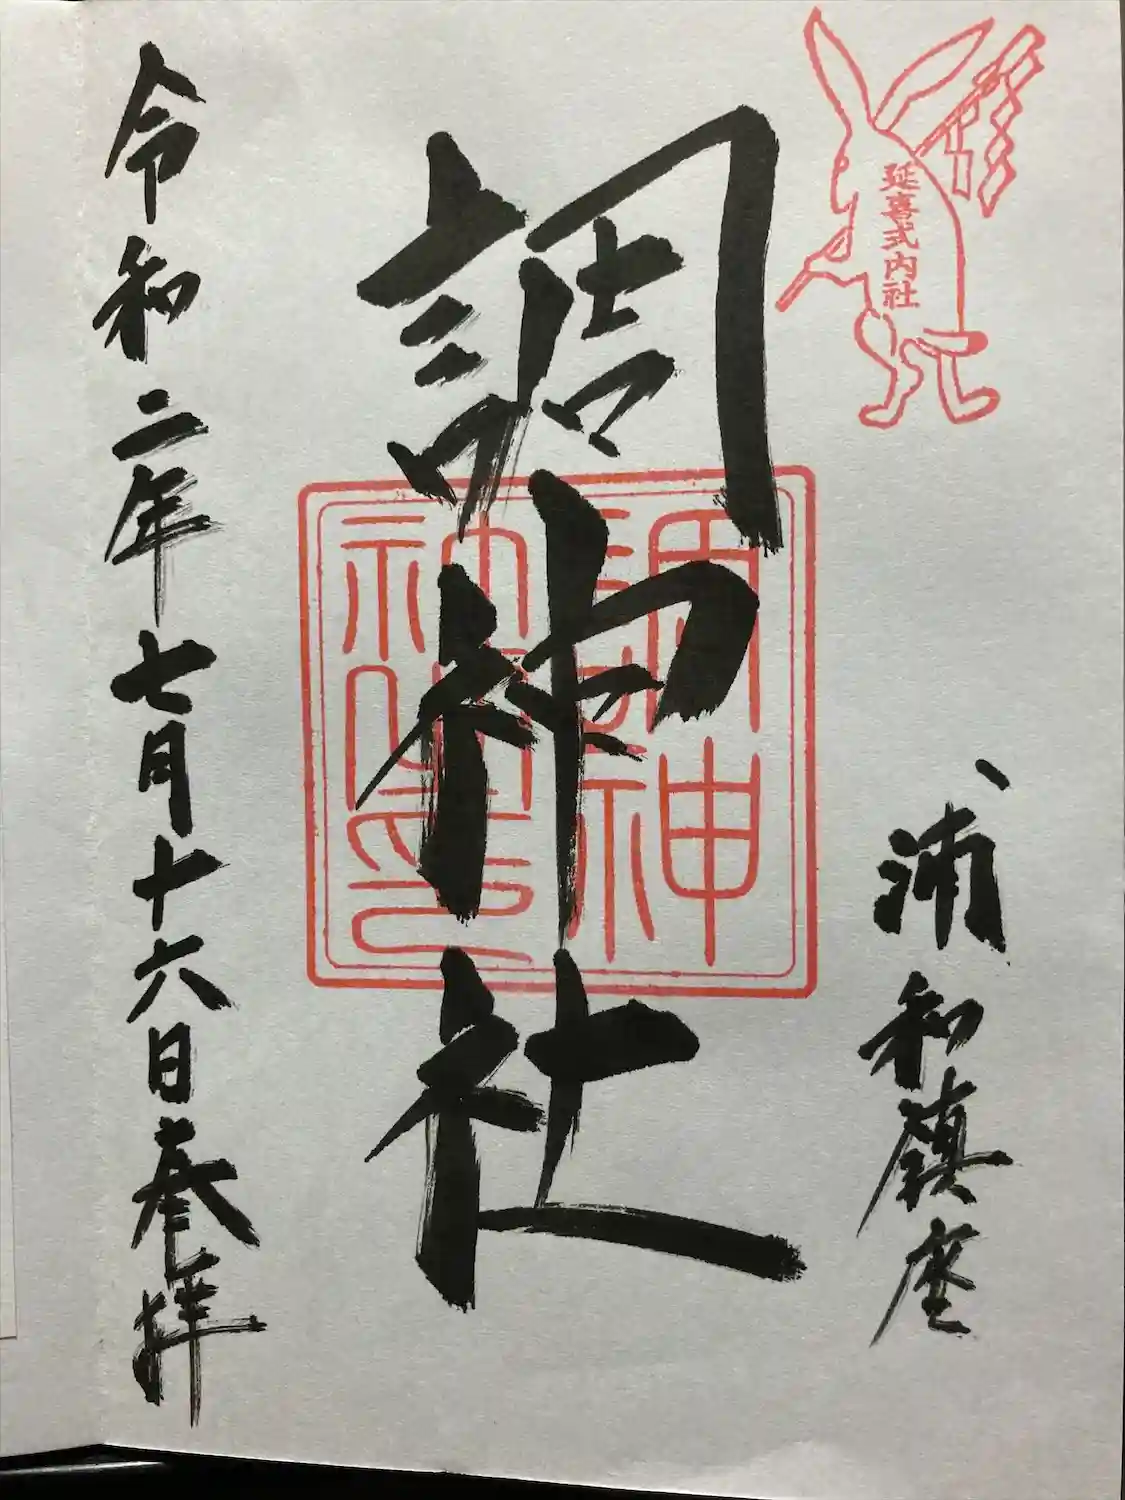 延喜式内社
浦和鎮座
調神社
調神
社之印
令和二年七月十六日奉拝